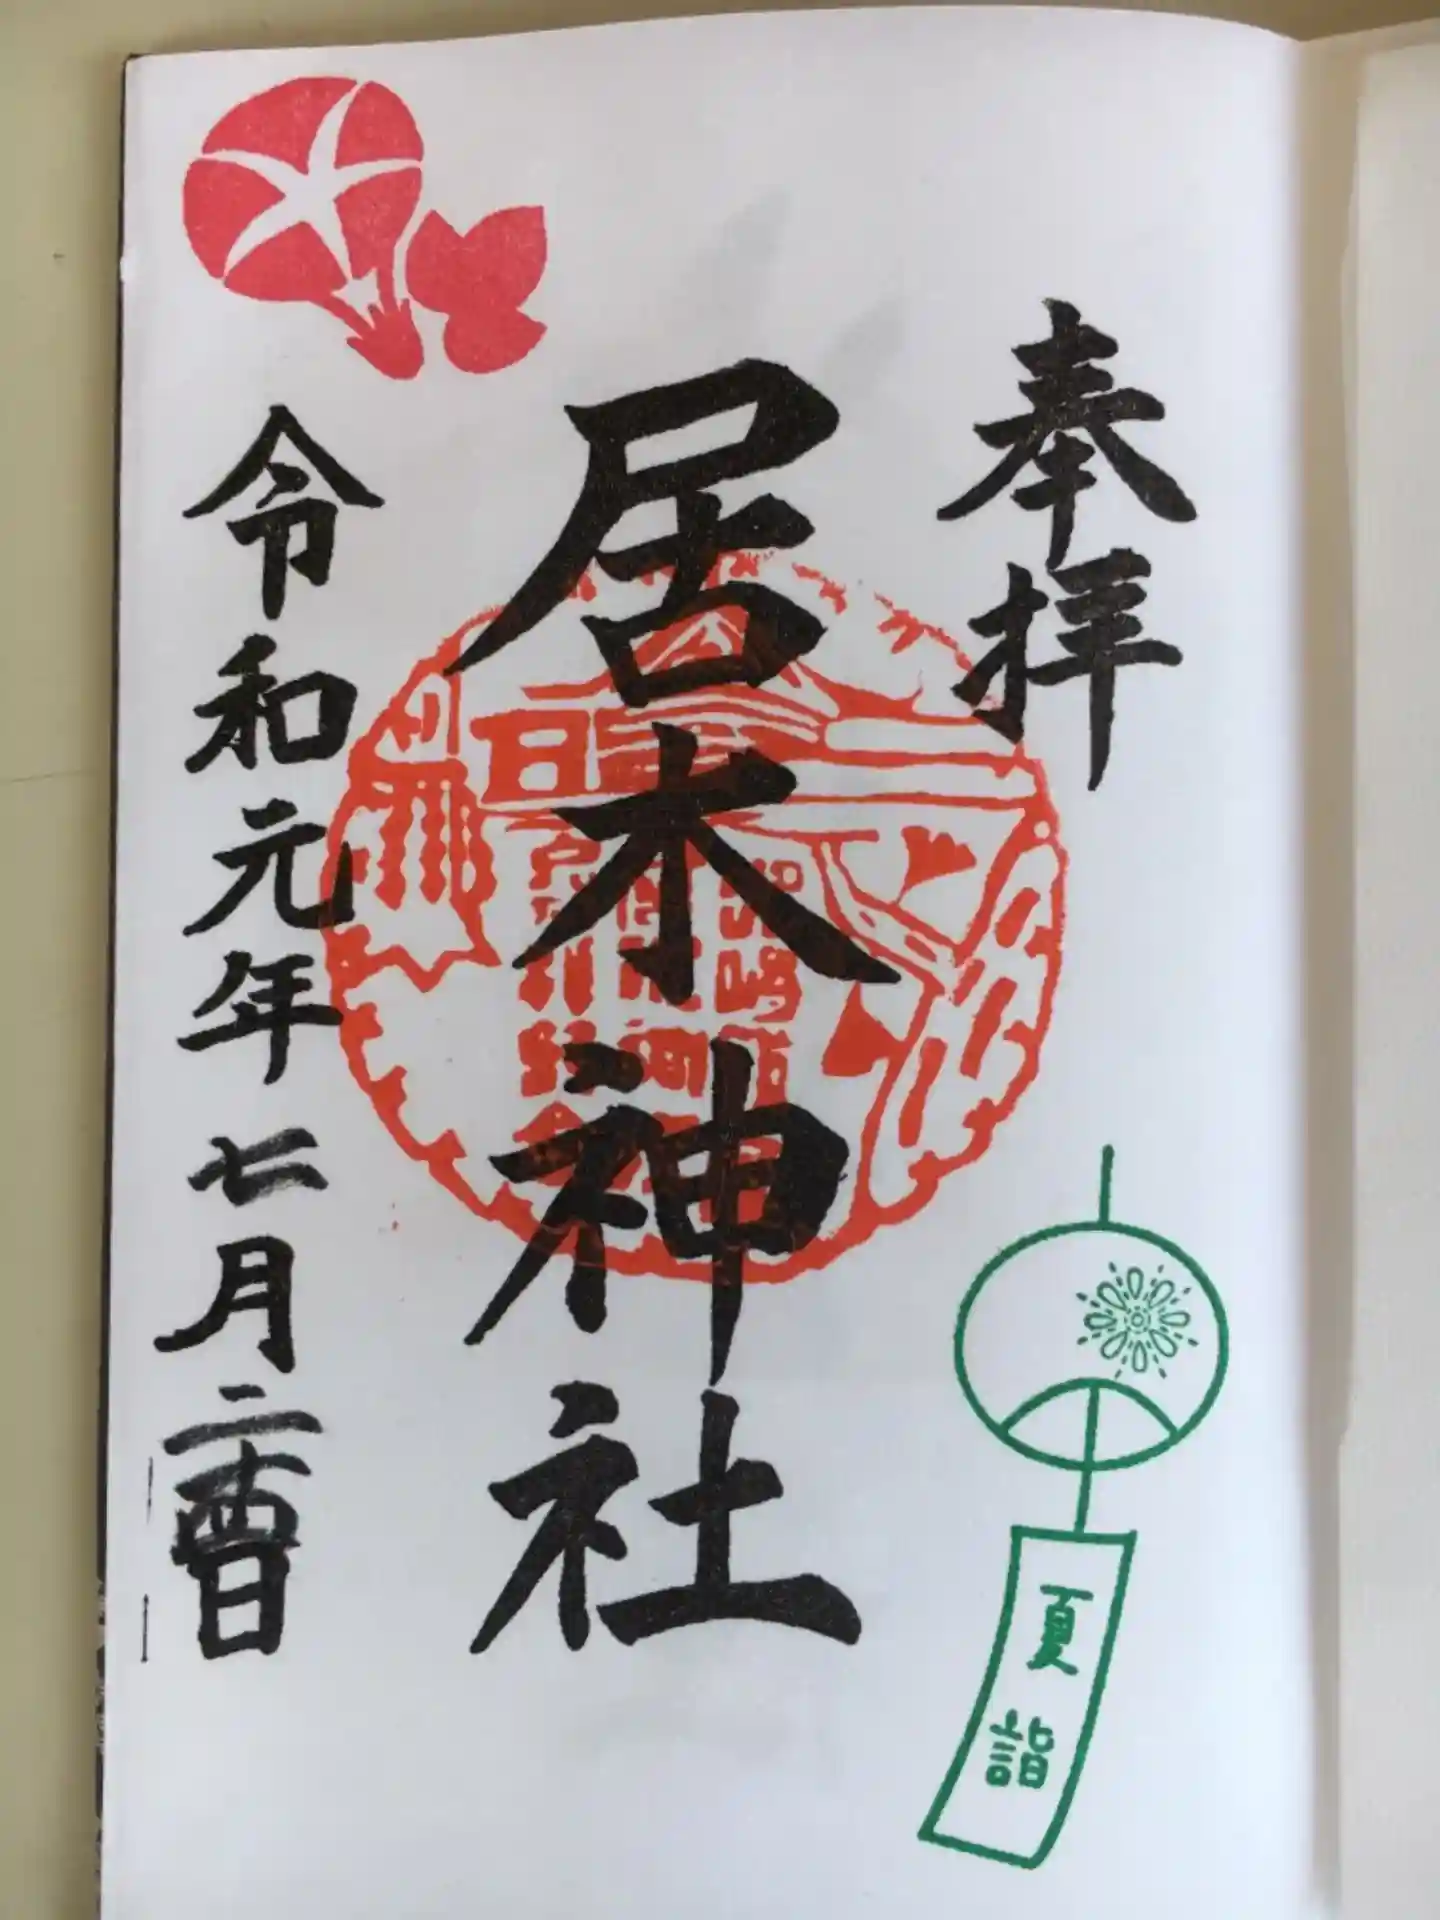 奉拝
居木神社
令和元年七月二十四日
夏詣